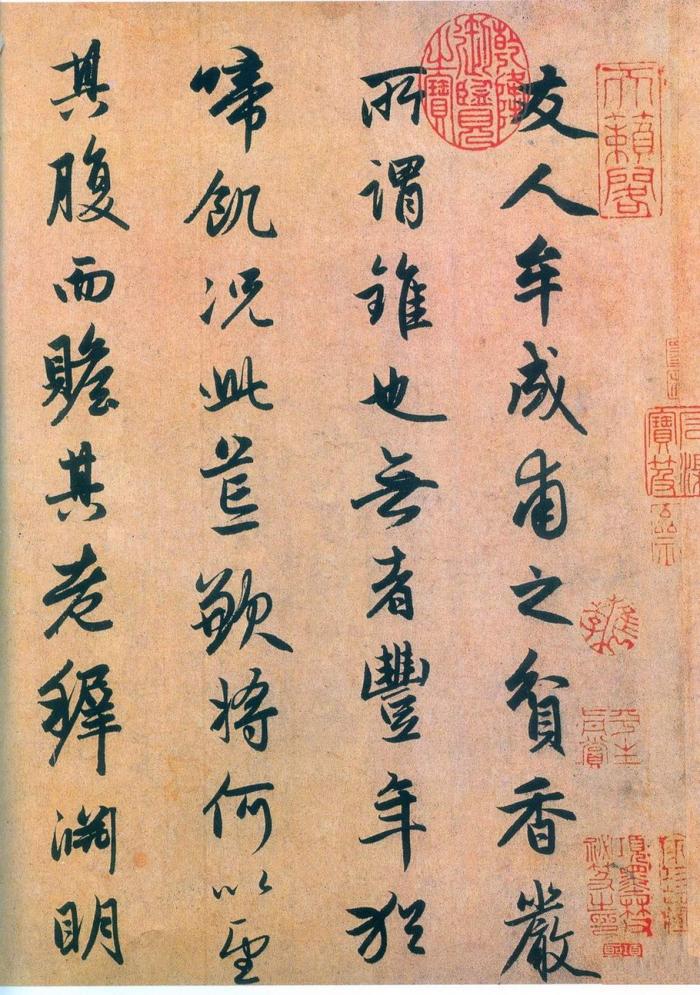 友人牟成甫之貧香嚴
所謂錐也無者豐年猶
啼飢況此荒歉將何以望
其腹而贍其老稺淵明
乾隆御覽之寶
天籟閣